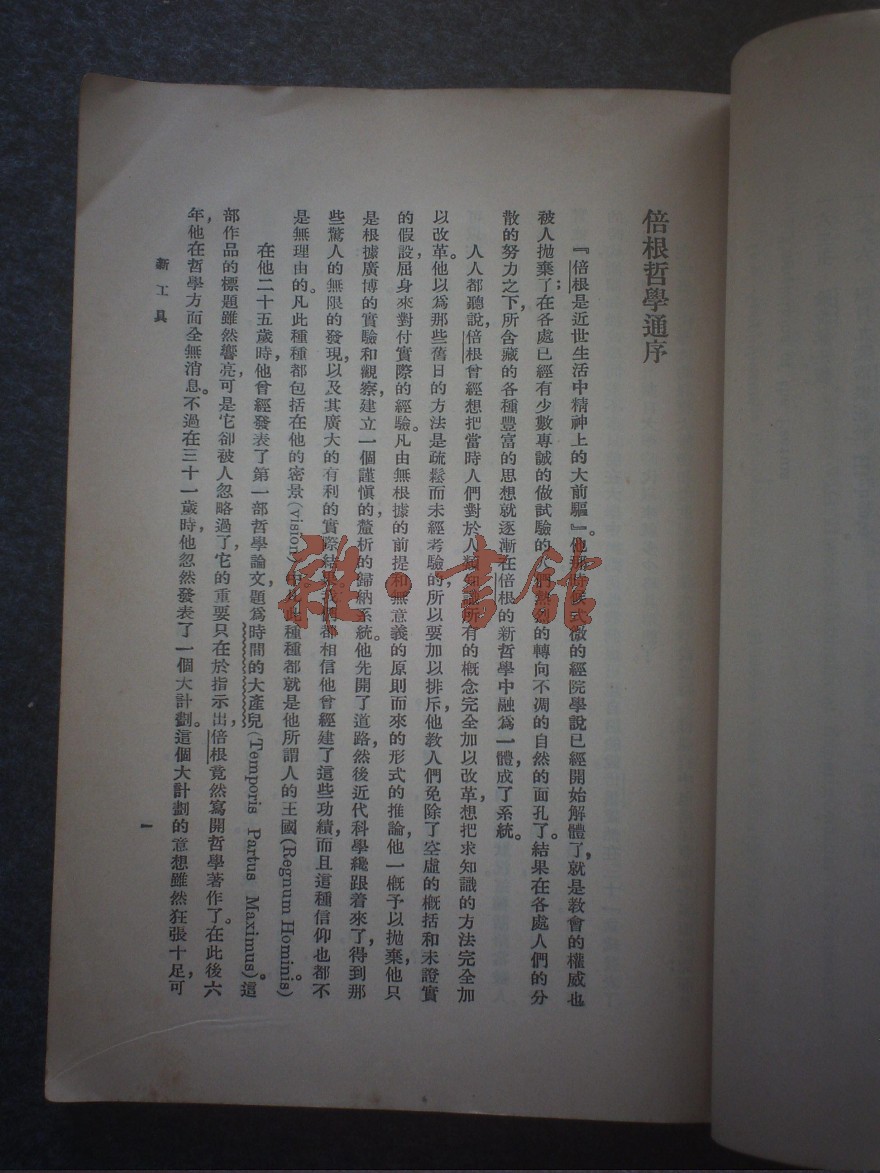 倍根哲學通序
『倍根是近世生活中精神上的大前驅』。他那時候式微的經院學說已經開始解體了，就是教會的權威也
被人拋棄了；在各處已經有少數專誠的做試驗的人們熱烈的轉向不凋的自然的面孔了。結果在各處人們的分
散的努力之下，所含藏的各種豐富的思想就逐漸在倍根的新哲學中融爲一體，成了系統。
人人都聽說，倍根曾經想把當時人們對於人類知識所有的概念完全加以改革，想把求知識的方法完全加
以改革。他以爲那些舊日的方法是疏鬆而未經考驗的，所以要加以排斥，他教人們免除了空虛的概括和未證實
的假設，屈身來對付實際的經驗。凡由無根據的前提和無意義的原則而來的形式的推論，他一概予以拋棄，他只
是根據廣博的實驗和觀察，建立一個謹慎的，釐析的歸納系統。他先開了道路，然後近代科學纔跟着來了，得到那
些驚人的無限的發現，以及其廣大的有利的實際結果。我們都相信他曾經建了這些功績，而且這種信仰也都不
是無理由的。凡此種種都包括在他的密景(vision)中，凡此種種都就是他所謂人的王國(Regnum Hominis)。
在他二十五歲時，他曾經發表了第一部哲學論文，題爲時間的大產兒(Temporis Partus Maximus)。這
部作品的標題雖然響亮，可是它卻被人忽略過了，它的重要只在於指示出，倍根竟然寫開哲學著作了。在此後六
年，他在哲學方面全無消息。不過在三十一歲時，他忽然發表了一個大計劃。這個大計劃的意想雖然狂張十足，可
新工具
一
雜·書館